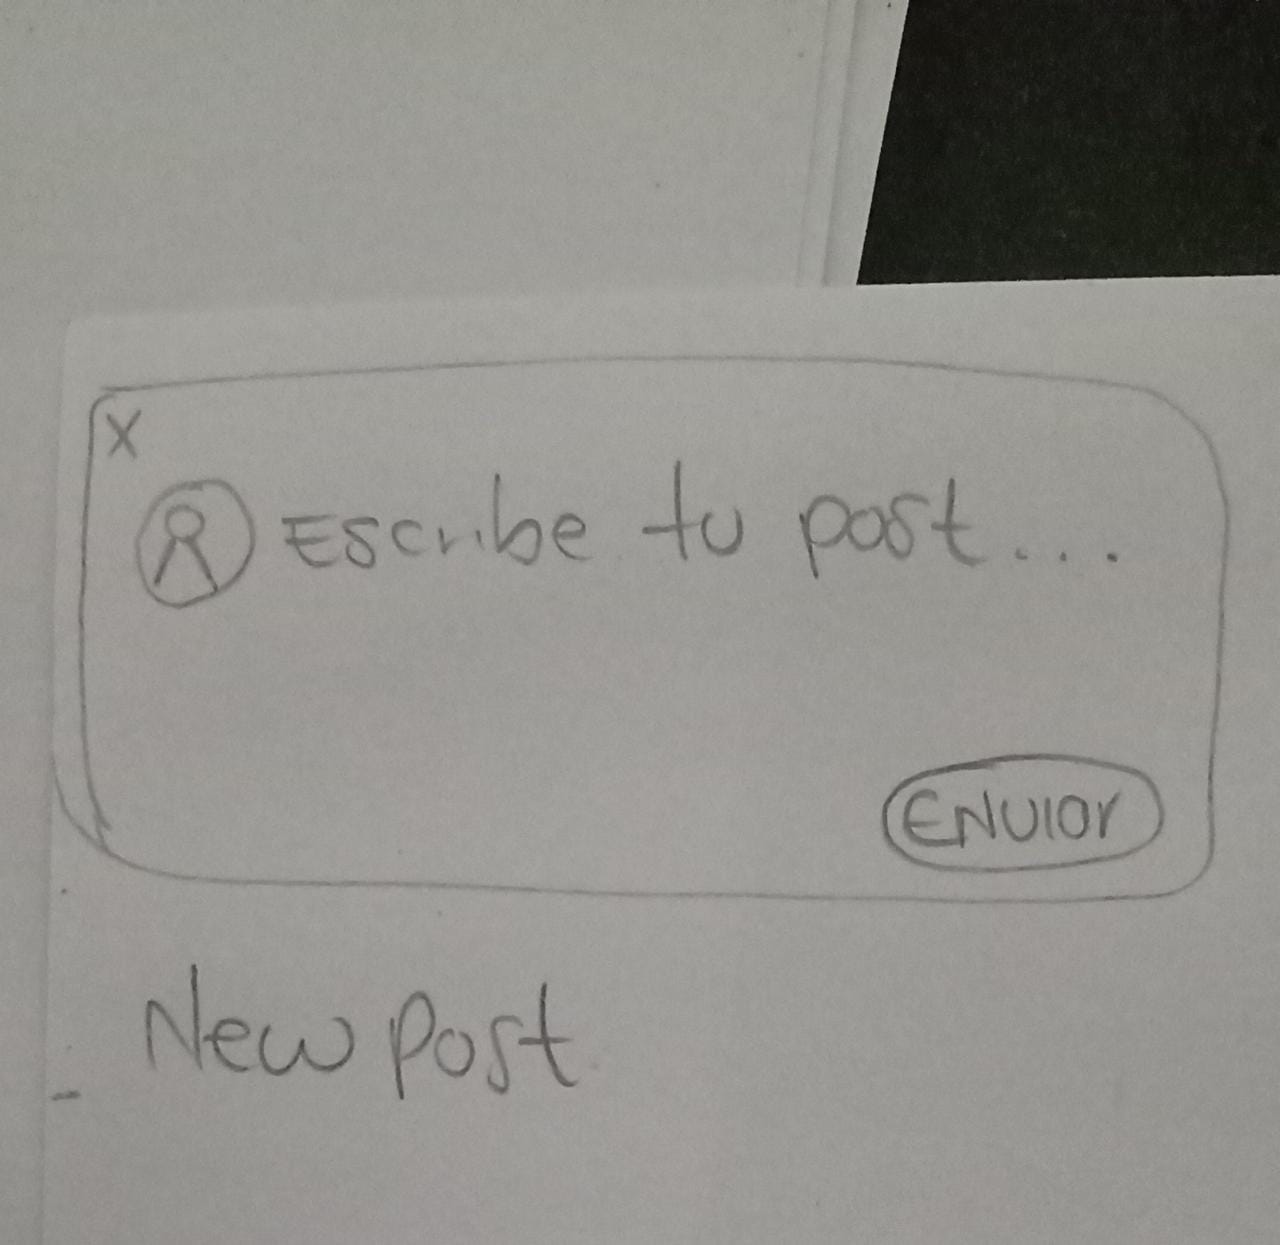 X
Escribe tu post...
ENVIar
New post